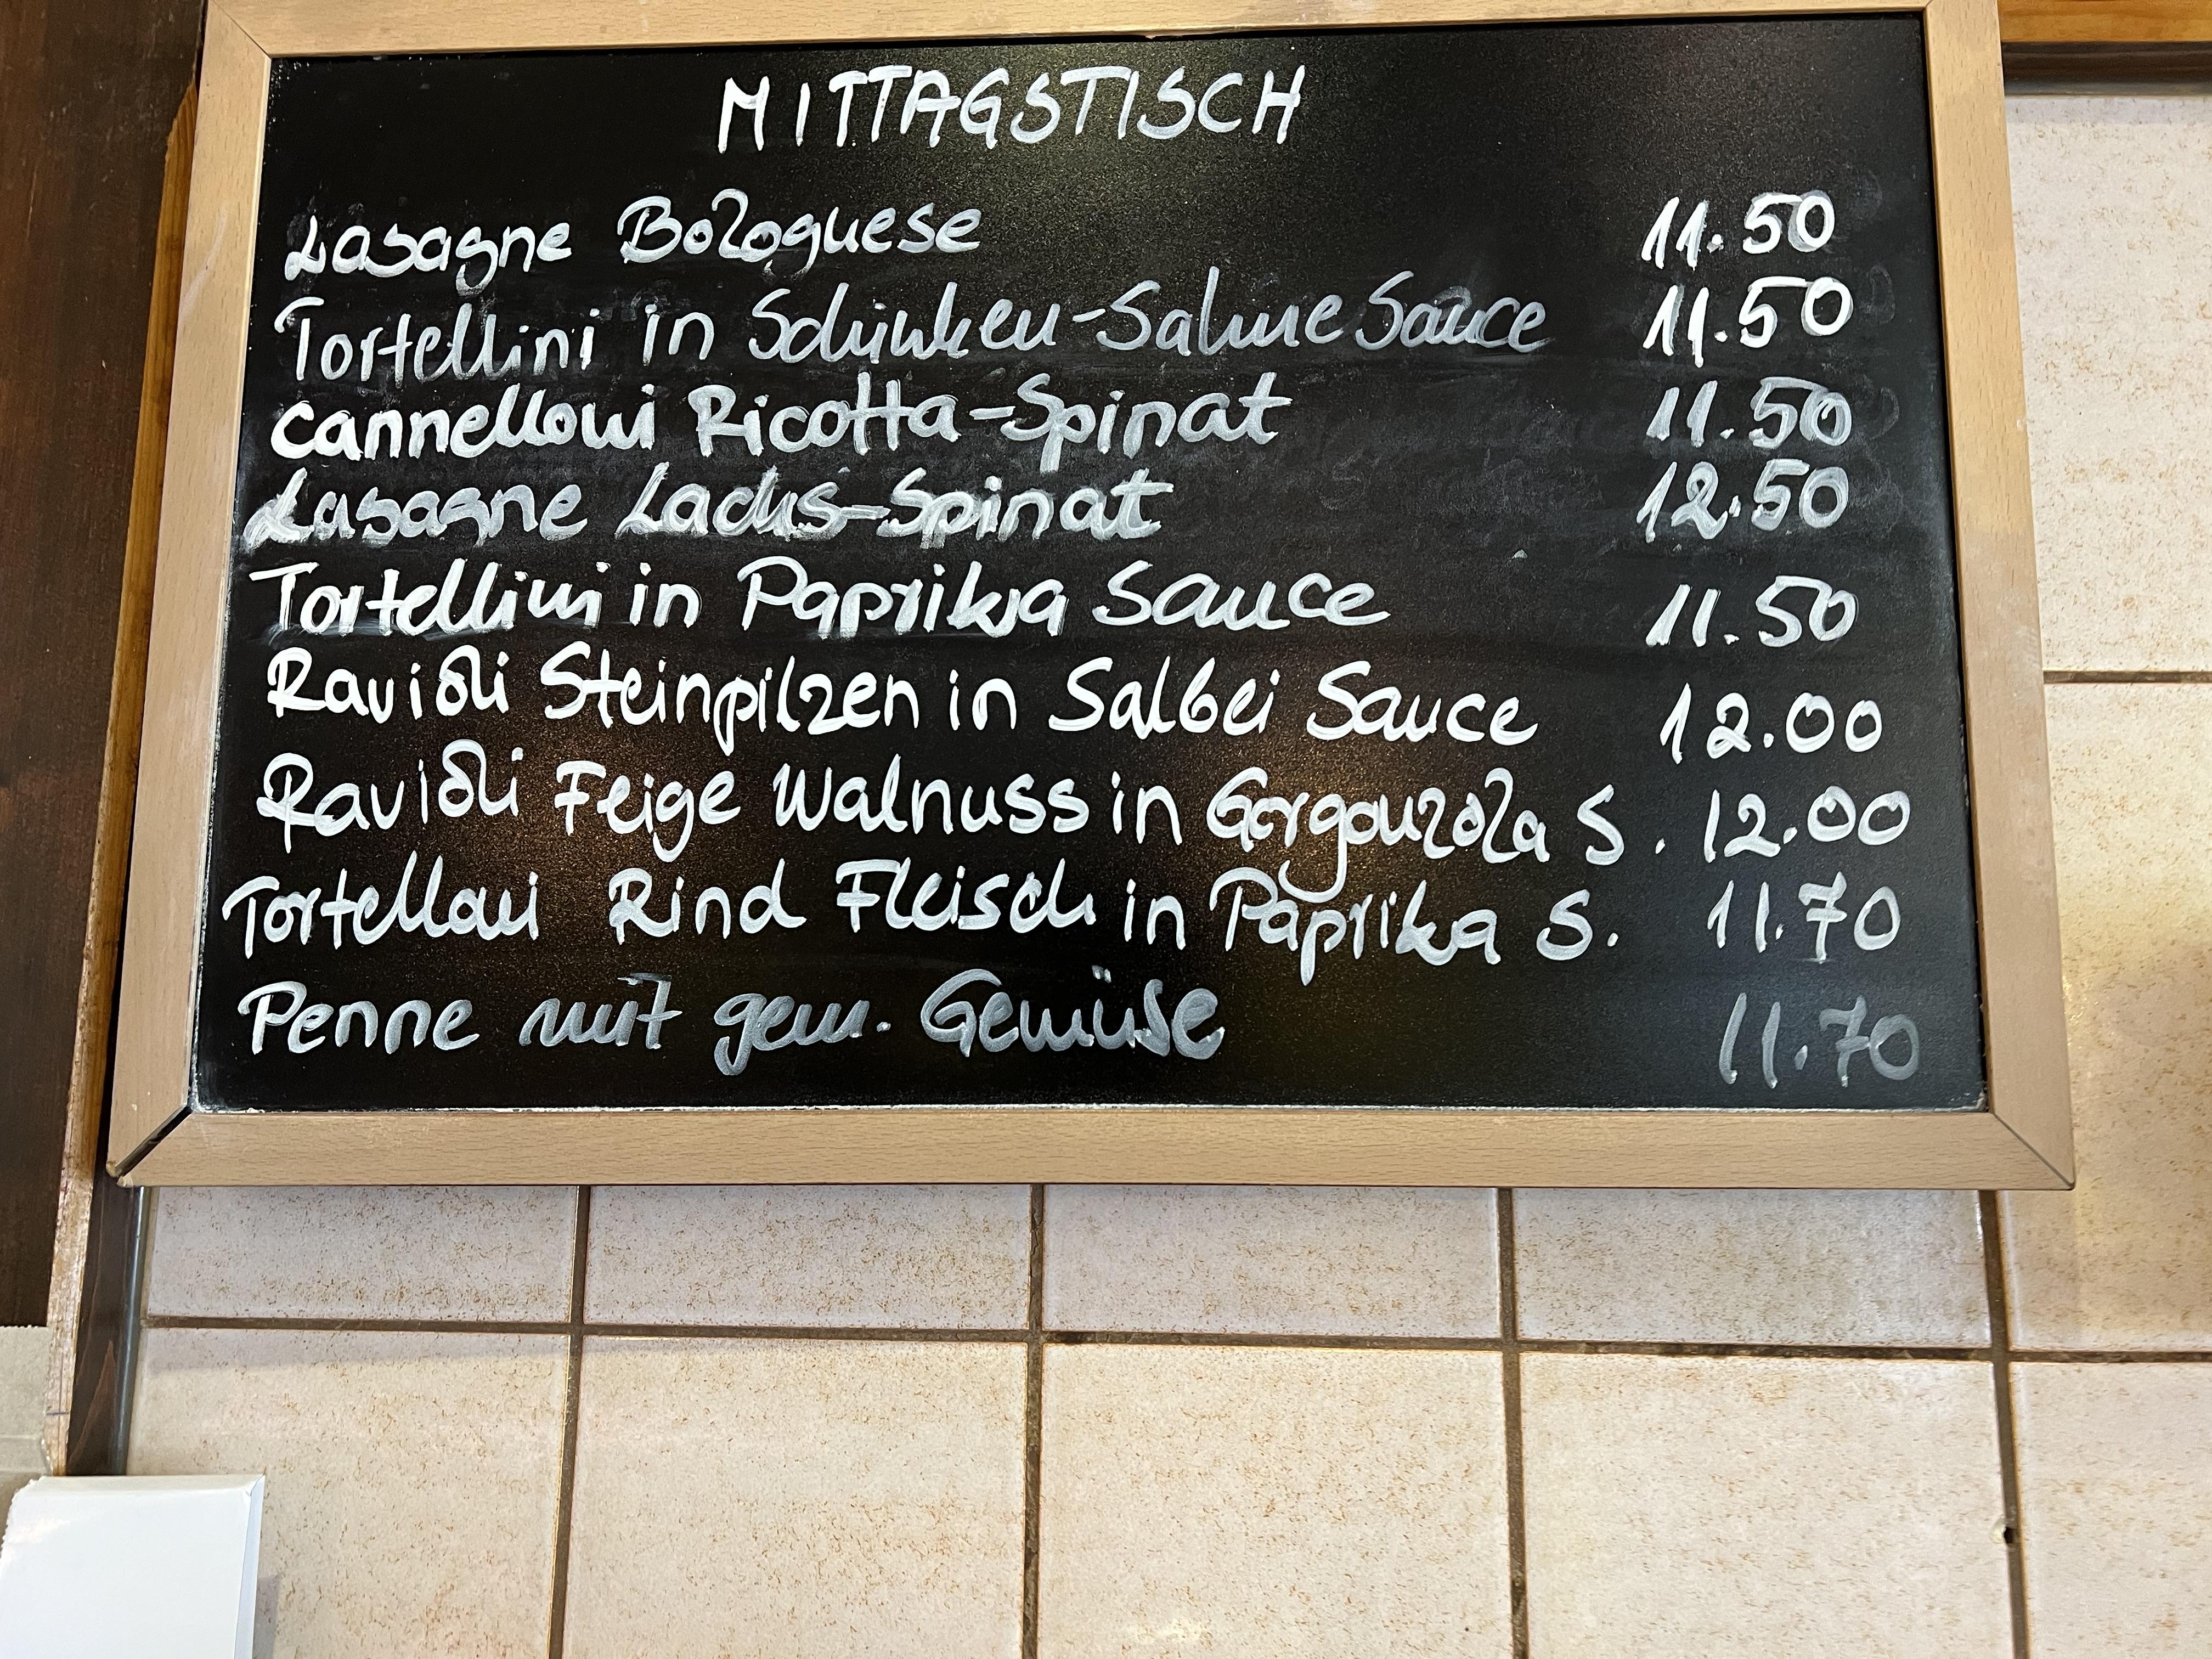 MITTAGSTISCH
Lasagne Bolognese 11.50
Tortellini in Schinken-Sahne Sauce 11.50
Cannelloni Ricotta-Spinat 11.50
Lasagne Lachs-Spinat 12.50
Tortellini in Paprika Sauce 11.50
Ravioli Steinpilzen in Salbei Sauce 12.00
Ravioli Feige Walnuss in Gorgonzola S. 12.00
Tortelloni Rind Fleisch in Paprika S. 11.70
Penne mit gem. Gemüse 11.70